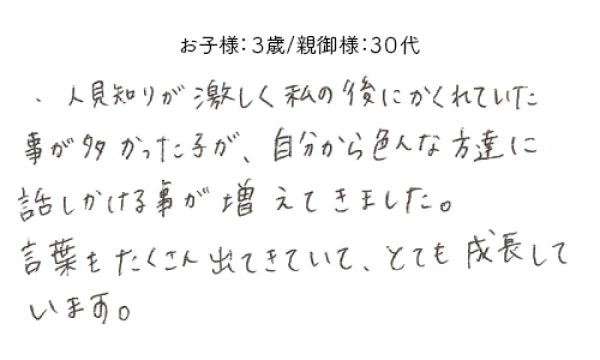 お子様：3歳/親御様：30代
・人見知りが激しく私の後にかくれていた
事が多かった子が、自分から色んな方達に
話しかける事が増えてきました。
言葉もたくさん出てきていて、とても成長して
います。